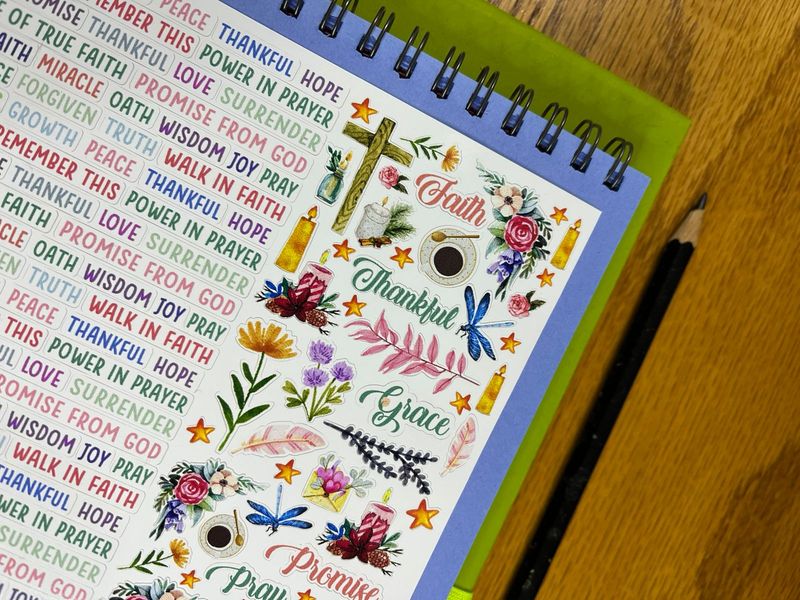 PEACE THANKFUL HOPE
MEMBER THIS POWER IN PRAYER
OMISE THANKFUL LOVE SURRENDER
E OF TRUE FAITH PROMISE FROM GOD
FAITH MIRACLE OATH WISDOM JOY PRAY
FORGIVEN TRUTH WALK IN FAITH
GROWTH PEACE THANKFUL HOPE
REMEMBER THIS POWER IN PRAYER
THANKFUL LOVE SURRENDER
FAITH PROMISE FROM GOD
ACLE OATH WISDOM JOY PRAY
EN TRUTH WALK IN FAITH
PEACE THANKFUL HOPE
THIS POWER IN PRAYER
UL LOVE SURRENDER
ROMISE FROM GOD
WISDOM JOY PRAY
WALK IN FAITH
THANKFUL HOPE
OWER IN PRAYER
SURRENDER
FROM GOD
JOY PRAY
Faith
Thankful
Grace
Promise
Pray